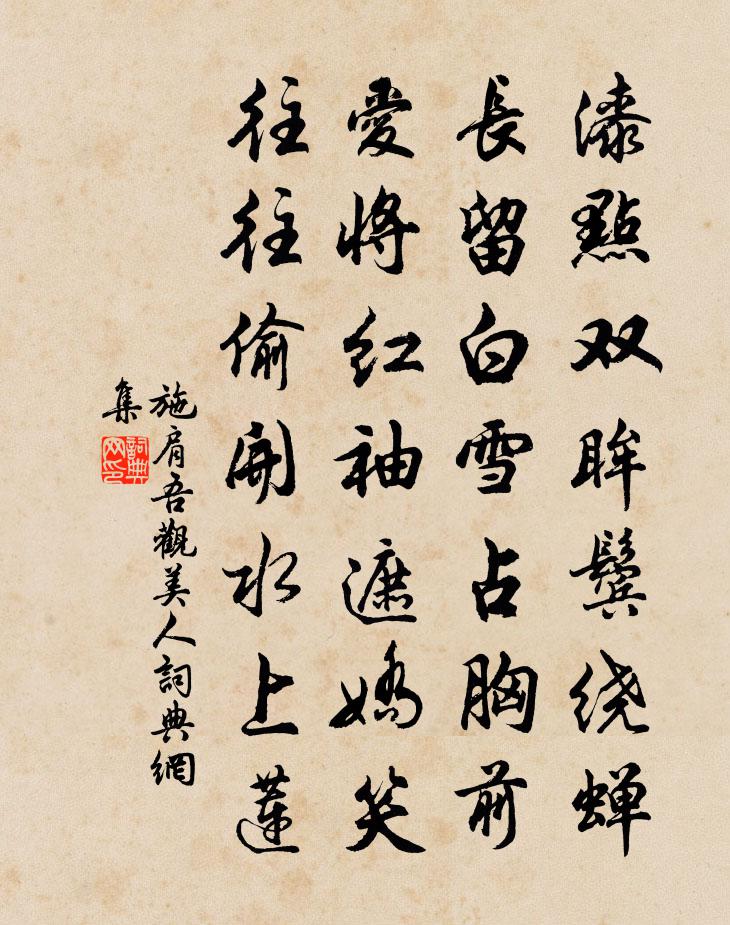 漆點双眸鬓绕蝉
長留白雪占胸前
愛將红袖遮嬌笑
往往偷開水上蓮
施肩吾觀美人詞典網
集
詞典网印